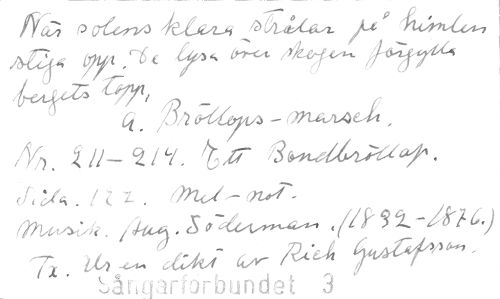 När solens klara strålar på himlen
stiga opp. De lysa över skogen förgylla
bergets topp,
a. Bröllops-marsch.
Nr. 211-214. Ett Bondbröllop.
Sida. 122. Mel-not.
Musik. Aug. Söderman. (1832-1876.)
Tx. Ur en dikt av Rich Gustafsson.
Sångarförbundet 3